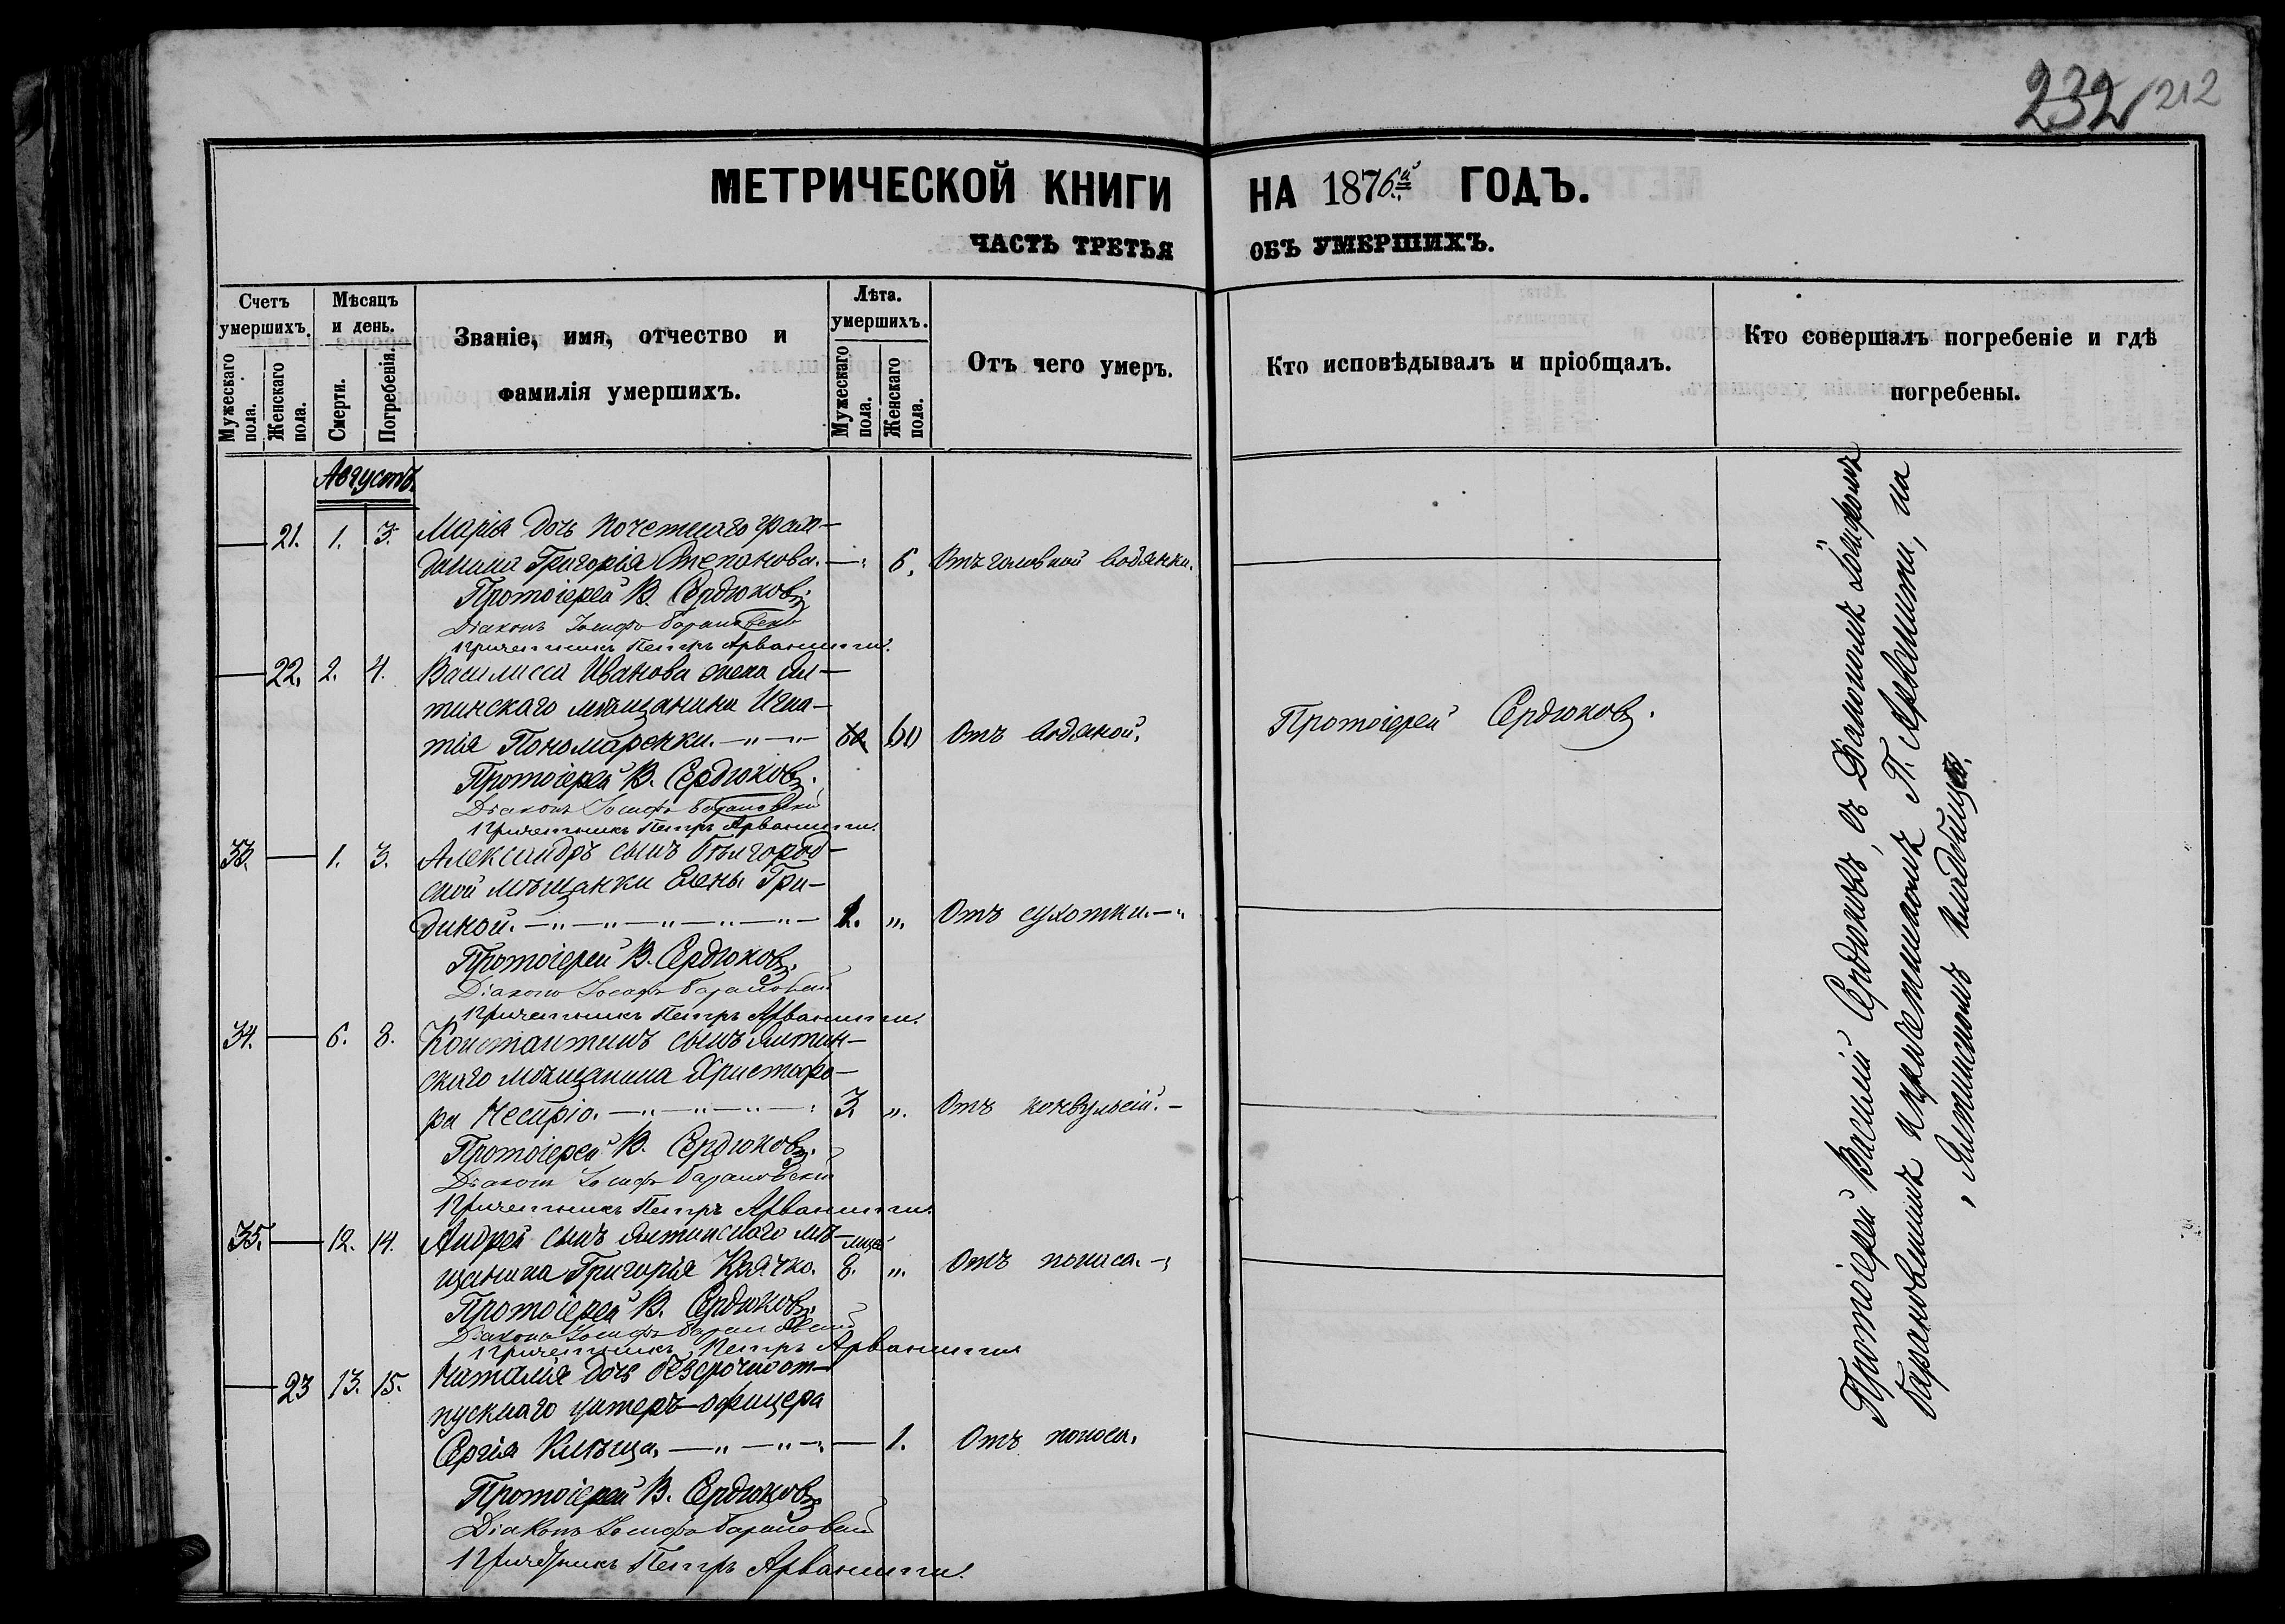 232 212
МЕТРИЧЕСКОЙ КНИГИ НА 1876й ГОДЪ.
ЧАСТЬ ТРЕТЬЯ ОБЪ УМЕРШИХЪ.
Счетъ умершихъ.
Мужескаго пола.
Женскаго пола.
Мѣсяцъ и день.
Смерти.
Погребенія.
Званіе, имя, отчество и
фамилія умершихъ.
Лѣта. умершихъ.
Мужескаго пола.
Женскаго пола.
Отъ чего умеръ.
Кто исповѣдывалъ и пріобщалъ.
Кто совершалъ погребеніе и гдѣ
погребены.
Августъ.
— 21. 1. 3. Марія дочь почетнаго граж-
данина Григорія Степанова. — 6. Отъ головной водянки.
Протоіерей В. Сердюковъ.
Діаконъ Іосифъ Барановскій
Причетникъ Петръ Арванити.
— 22. 2. 4. Василисса Иванова жена Ял-
тинскаго мѣщанина Игна-
тія Пономаренки. — 60 Отъ водяной.
Протоіерей Сердюковъ.
Протоіерей В. Сердюковъ.
Діаконъ Іосифъ Барановскій
Причетникъ Петръ Арванити.
33. — 1. 3. Александръ сынъ Бѣлгород-
ской мѣщанки Елены Гри-
дикой. — 1. „ Отъ сухотки. —
Протоіерей В. Сердюковъ.
Діаконъ Іосифъ Барановскій
Причетникъ Петръ Арванити.
34. — 6. 8. Константинъ сынъ Ялтин-
скаго мѣщанина Христофо-
ра — 3. „ Отъ конвульсій. —
Протоіерей В. Сердюковъ.
Діаконъ Іосифъ Барановскій
Причетникъ Петръ Арванити.
35. — 12. 14. Андрей сынъ Ялтинскаго мѣ-
щанина Григорія Крячко. 8. „ Отъ поноса. —
Протоіерей В. Сердюковъ.
Діаконъ Іосифъ Барановскій
Причетникъ Петръ Арванити
— 23 13. 15. Наталія дочь безсрочноот-
пускнаго унтеръ-офицера
Сергія — 1. Отъ поноса.
Протоіерей В. Сердюковъ
Діаконъ Іосифъ Барановскій
Причетникъ Петръ Арванити.
Протоіерей Василій Сердюковъ, съ Діакономъ Іосифомъ
Барановскимъ и причетникомъ П. Арванити, на
Ялтинскомъ кладбищѣ.